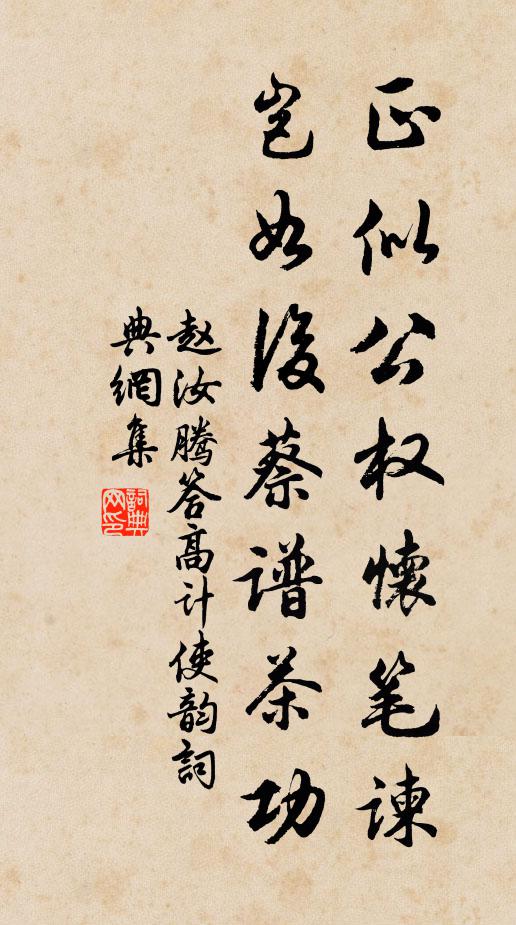 正似公权懷笔諫
岂如後蔡谱茶功
赵汝腾答高计使韵詞
典網集
詞典網印